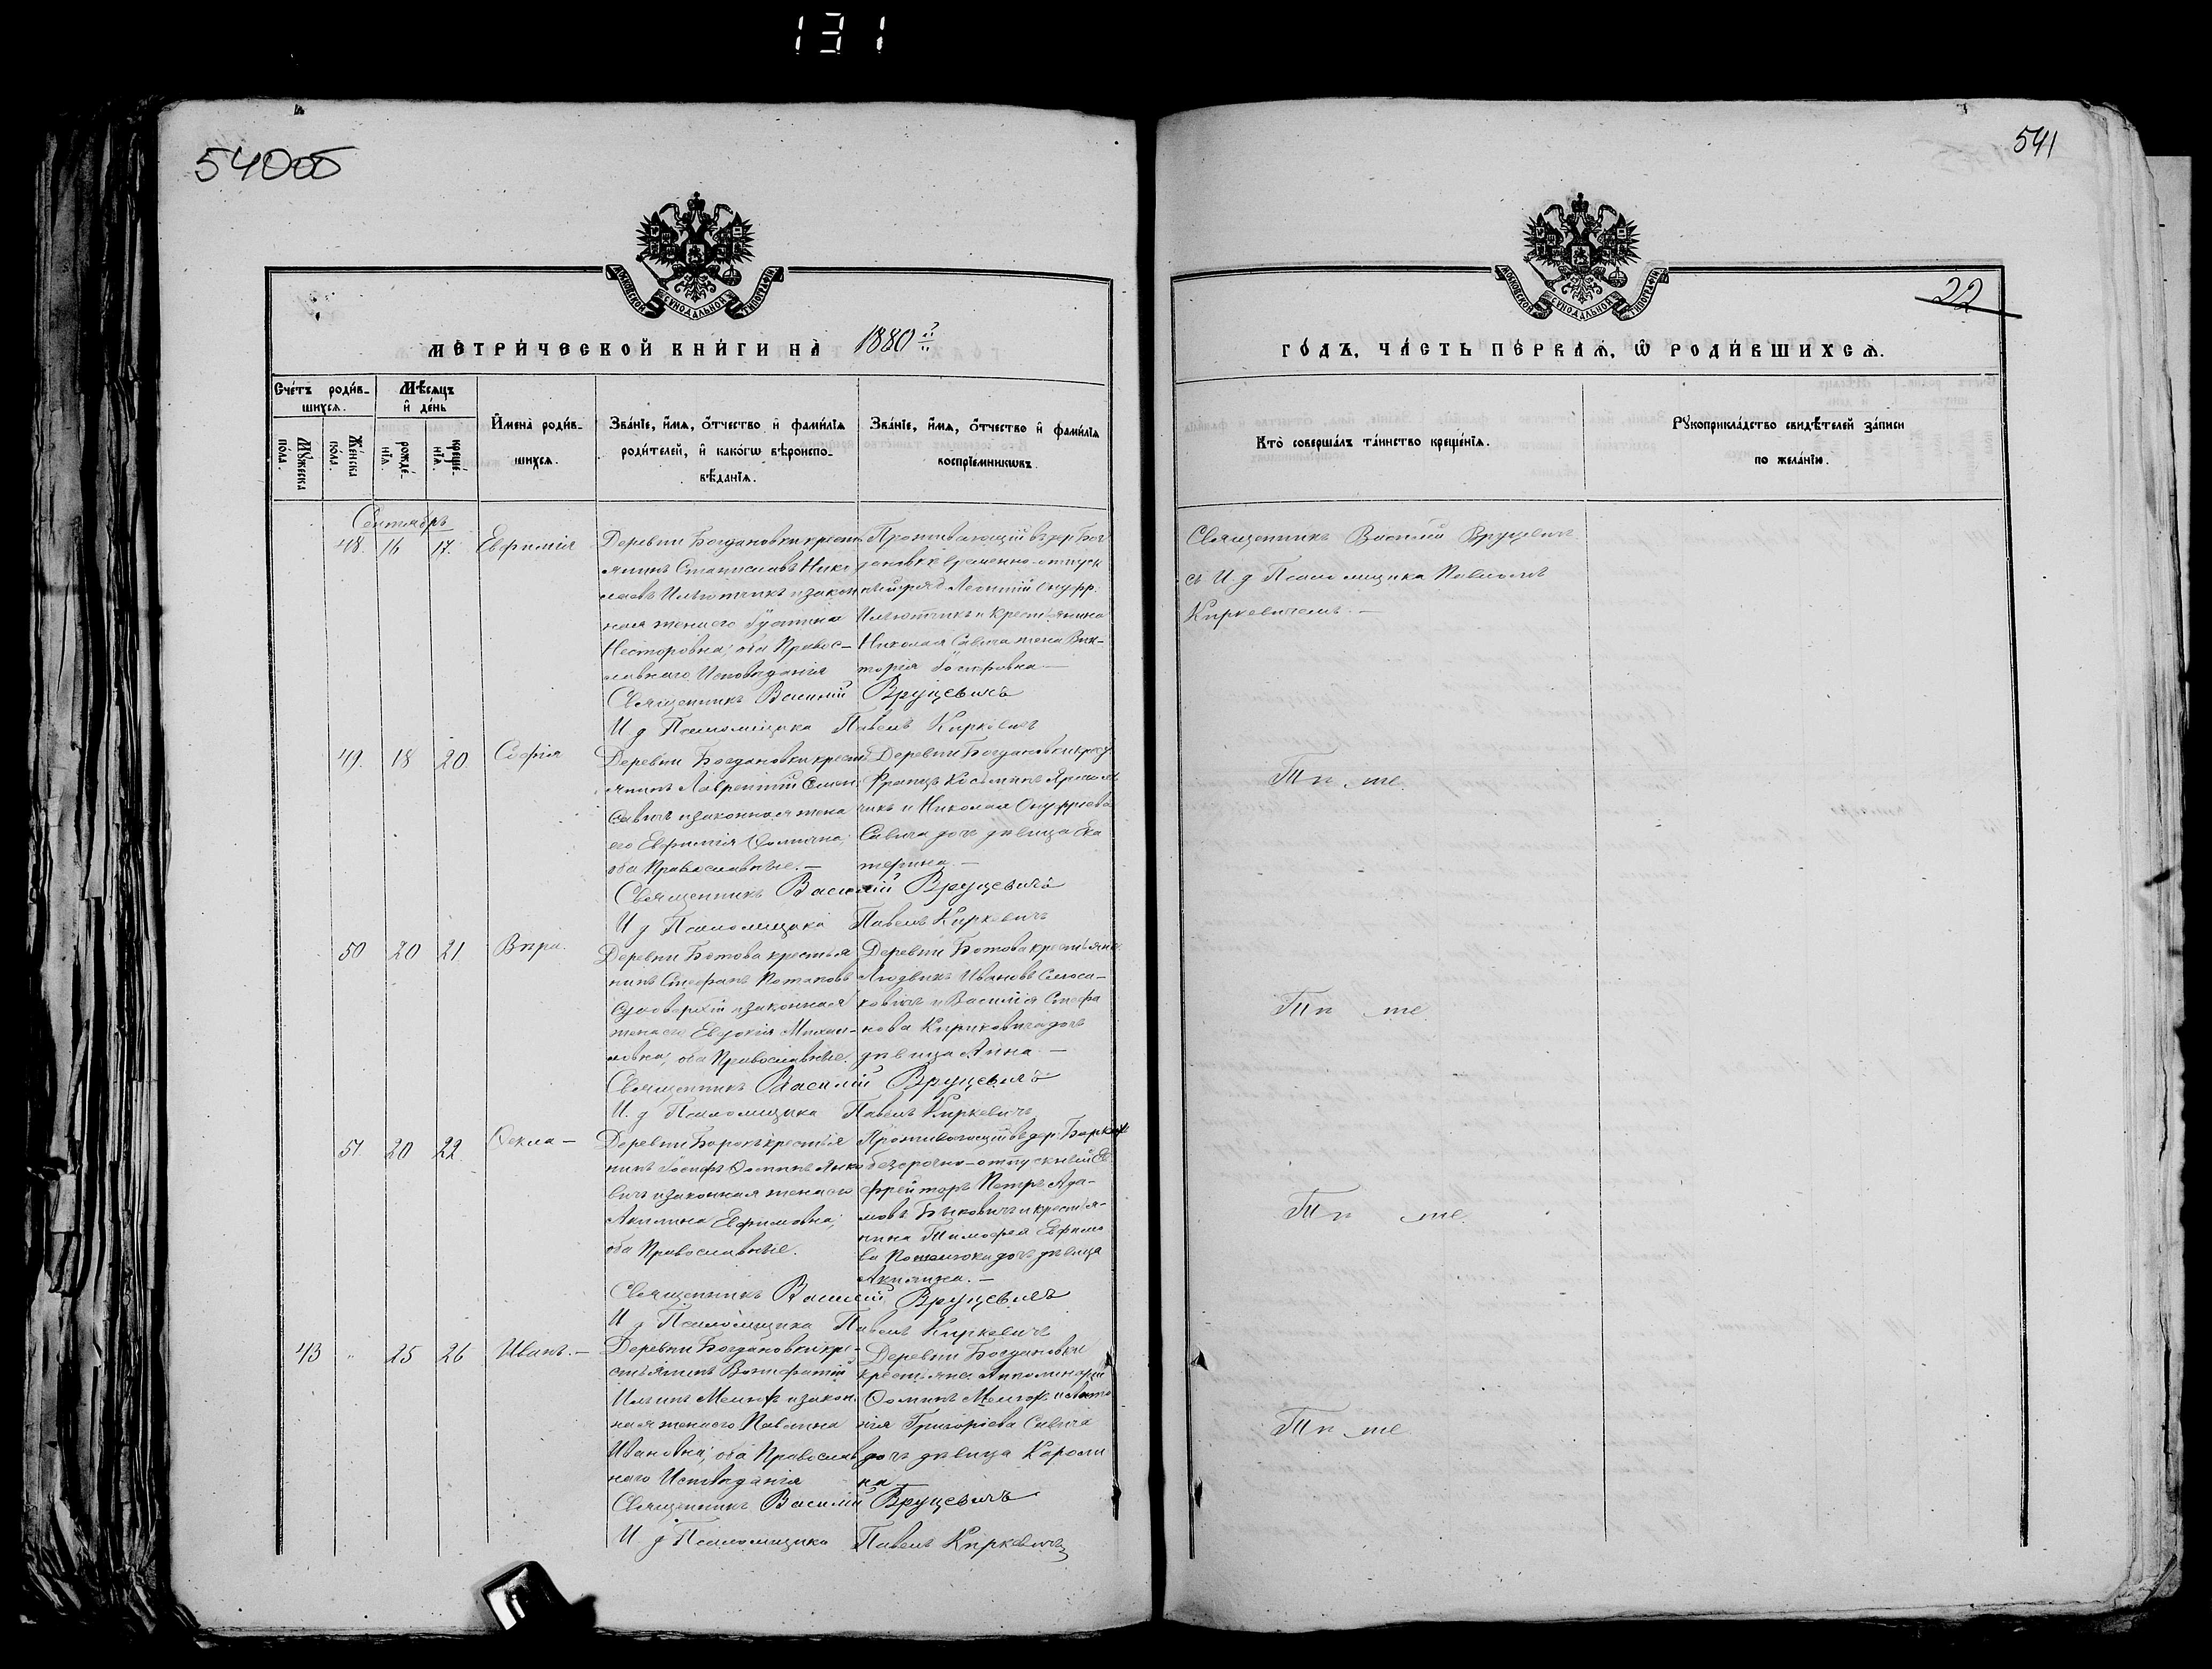 131
540об
541
22
МОСКОВСКОЙ СѴНОДАЛЬНОЙ ТИПОГРАФІИ
МОСКОВСКОЙ СѴНОДАЛЬНОЙ ТИПОГРАФІИ
МЕТРИ́ЧЕСКОЙ КНИ́ГИ НА̀ 1880й
ГО́ДЪ, ЧА́СТЬ ПЕ́РВАѦ, Ѡ҆ РОДИ́ВШИХСѦ.
Сче́тъ роди́в-
шихсѧ.
Мѣ́сѧцъ
и҆ де́нь
Мꙋ́жеска
по́ла.
Же́нска
по́ла.
рожде́-
нїѧ.
креще́-
нїѧ.
И҆мена̀ роди́в-
шихсѧ.
Зва́нїе, и҆́мѧ, ѻ҆́тчество и҆ фами́лїѧ
роди́телей, и҆ како́гѡ вѣроиспо-
вѣ́данїѧ.
Зва́нїе, и҆́мѧ, ѻ҆́тчество и҆ фами́лїѧ
воспрїе́мникѡвъ.
Кто̀ соверша́лъ та́инство креще́нїѧ.
Рꙋкоприкла́дство свидѣ́телей за́писи
по жела́нїю.
Сентябрь
48. 16 17. Евфимія
Деревни Богдановки крестъ
янинъ Станиславъ Нико
лаевъ Ильютчикъ и закон
ная жена его Густина
Несторовна; оба Правос-
лавнаго Исповѣданія
Проживающій въ дер. Бог
дановкѣ временно-отпуск
ный ряд. Леонтій Онуфр.
Ильютчикъ и крестьянина
Николая Савича жена Вик-
торія Іосифовна —
Священникъ Василій Вруцевичъ
И д Псаломщика Павелъ Киркевичъ
Священникъ Василій Вруцевичъ
съ И. д Псаломщика Павломъ
Киркевичемъ. —
49. 18 20. Софія
Деревни Богдановки крестъ
янинъ Лаврентій Семен.
Савичъ и законная жена
его Евфимія Ѳомична;
оба Православные. —
Деревни Богдановки крест
Францъ Косьминъ
чикъ и Николая Онуфріева
Савича дочь дѣвица Ека
терина. —
Священникъ Василій Вруцевичъ
И д Псаломщика Павелъ Киркевичъ
Тѣ же.
50 20 21 Вѣра.
Деревни Ботова крестья
нинъ Стефанъ Потаповъ
и законная
жена его Евдокія Михаи-
ловна; оба Православные.
Деревни Ботова крестьянинъ
Людвикъ Ивановъ
ковичъ и Василія Стефа
нова Кириковича дочь
дѣвица Анна. —
Священникъ Василій Вруцевичъ
И. д Псаломщика Павелъ Киркевичъ
Тѣ же
51. 20 22. Ѳекла —
Деревни Борокъ крестья
нинъ Іосифъ Ѳоминъ Янко
вичъ и законная жена его
Акилина Евфимовна;
оба Православные.
Проживающій въ дер. Боркахъ
безсрочно-отпускный Еѳ
фрейторъ Петръ Ада-
мовъ Быковичъ и крестья-
нина Тимофея Евфимо
ва дочь дѣвица
Акилина. —
Священникъ Василій Вруцевичъ
И д Псаломщика Павелъ Киркевичъ
Тѣ же.
43 " 25 26 Иванъ. —
Деревни Богдановки кре-
стьянинъ Вонифатій
Ильинъ и закон
ная жена его Павлина
Ивановна; оба Православ
наго Исповѣданія
Деревни Богдановки
крестьяне Апполинарій
Ѳоминъ и Анто
нія Григоріева Савича
дочь дѣвица Кароли
на —
Священникъ Василій Вруцевичъ
И д Псаломщика Павелъ Киркевичъ
Тѣ же